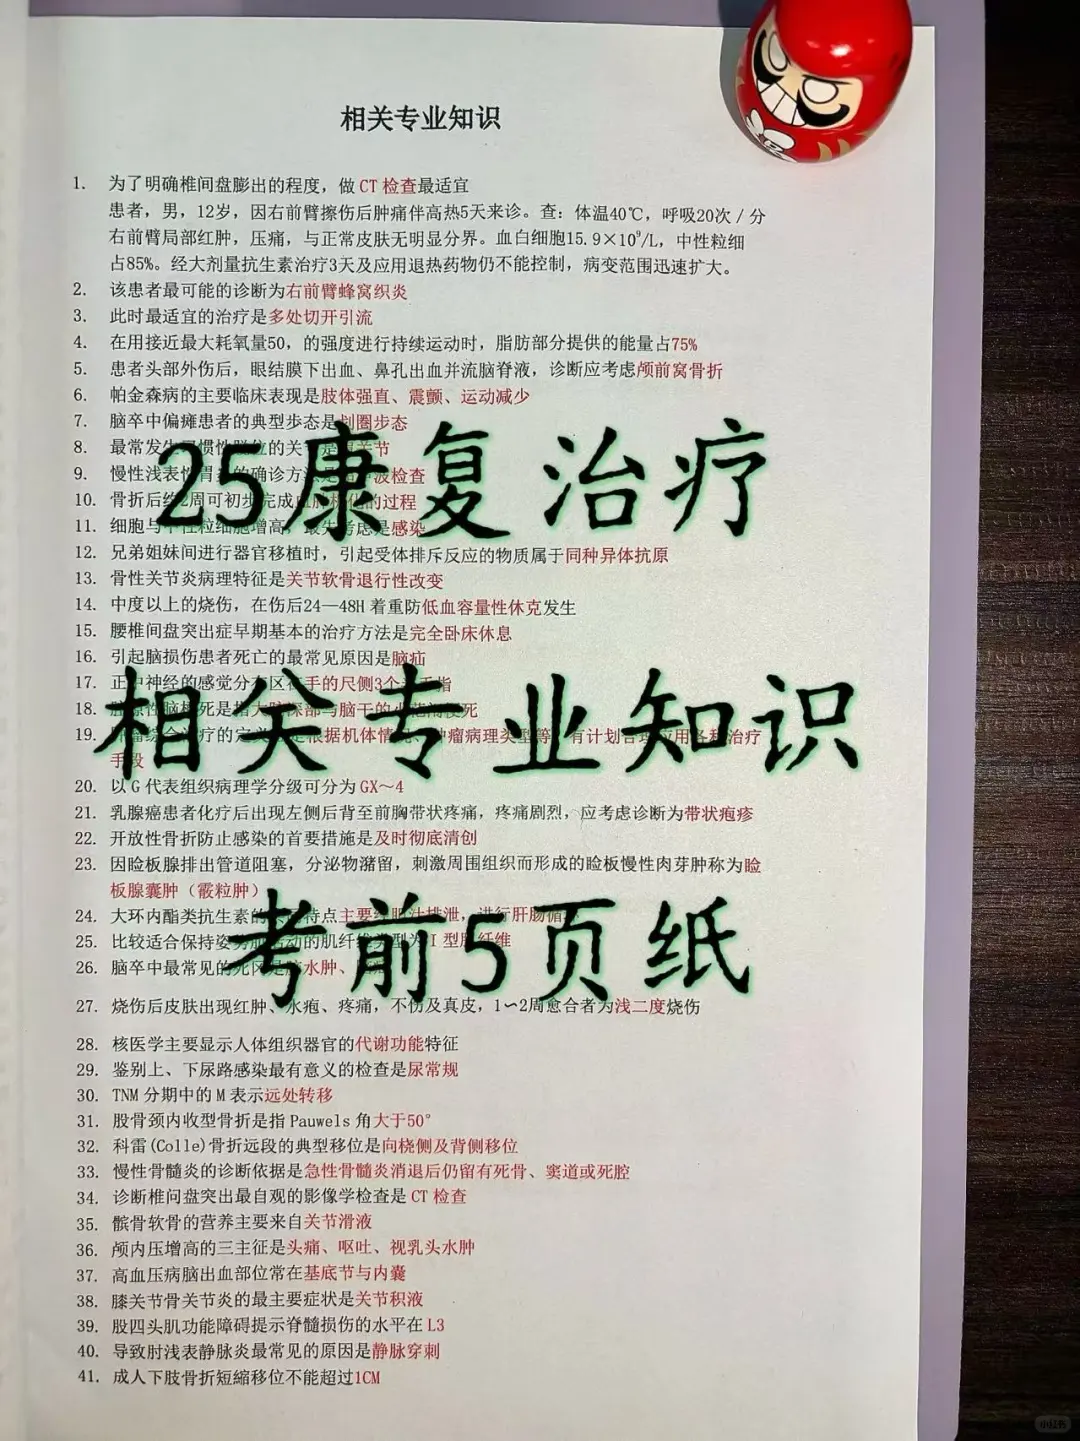 相关专业知识
1. 为了明确椎间盘膨出的程度，做 CT 检查最适宜
患者，男，12岁，因右前臂擦伤后肿痛伴高热5天来诊。查：体温40℃，呼吸20次／分
右前臂局部红肿，压痛，与正常皮肤无明显分界。血白细胞15.9×10⁹/L，中性粒细
占85%。经大剂量抗生素治疗3天及应用退热药物仍不能控制，病变范围迅速扩大。
2. 该患者最可能的诊断为右前臂蜂窝织炎
3. 此时最适宜的治疗是多处切开引流
4. 在用接近最大耗氧量50，的强度进行持续运动时，脂肪部分提供的能量占75%
5. 患者头部外伤后，眼结膜下出血、鼻孔出血并流脑脊液，诊断应考虑颅前窝骨折
6. 帕金森病的主要临床表现是肢体强直、震颤、运动减少
7. 脑卒中偏瘫患者的典型步态是划圈步态
8. 最常发生习惯性脱位的关节是
9. 慢性浅表性胃炎的确诊方法是 波检查
25康复治疗
10. 骨折后经2周可初步完成 的过程
11. 细胞与中性粒细胞增高，最先考虑是感染
12. 兄弟姐妹间进行器官移植时，引起受体排斥反应的物质属于同种异体抗原
13. 骨性关节炎病理特征是关节软骨退行性改变
14. 中度以上的烧伤，在伤后24—48H 着重防低血容量性休克发生
15. 腰椎间盘突出症早期基本的治疗方法是完全卧床休息
16. 引起脑损伤患者死亡的最常见原因是脑疝
17. 正中神经的感觉分布区在手的尺侧3个半手指
相关专业知识
18. 腔隙性脑梗死是指大脑深部与脑干的 死
19. 肿瘤综合治疗的定义是根据机体情况、肿瘤病理类型等，有计划合理应用各种治疗
手段
20. 以 G 代表组织病理学分级可分为 GX～4
21. 乳腺癌患者化疗后出现左侧后背至前胸带状疼痛，疼痛剧烈，应考虑诊断为带状疱疹
22. 开放性骨折防止感染的首要措施是及时彻底清创
23. 因睑板腺排出管道阻塞，分泌物潴留，刺激周围组织而形成的睑板慢性肉芽肿称为睑
板腺囊肿（霰粒肿）
24. 大环内酯类抗生素的 特点主要经胆汁排泄，进行肝肠循环
25. 比较适合保持姿势 活动的肌纤维类型为 I 型肌纤维
考前5页纸
26. 脑卒中最常见的死因是脑水肿、
27. 烧伤后皮肤出现红肿、水疱、疼痛，不伤及真皮，1～2周愈合者为浅二度烧伤
28. 核医学主要显示人体组织器官的代谢功能特征
29. 鉴别上、下尿路感染最有意义的检查是尿常规
30. TNM 分期中的 M 表示远处转移
31. 股骨颈内收型骨折是指 Pauwels 角大于50°
32. 科雷(Colle)骨折远段的典型移位是向桡侧及背侧移位
33. 慢性骨髓炎的诊断依据是急性骨髓炎消退后仍留有死骨、窦道或死腔
34. 诊断椎问盘突出最自观的影像学检查是 CT 检查
35. 髌骨软骨的营养主要来自关节滑液
36. 颅内压增高的三主征是头痛、呕吐、视乳头水肿
37. 高血压病脑出血部位常在基底节与内囊
38. 膝关节骨关节炎的最主要症状是关节积液
39. 股四头肌功能障碍提示脊髓损伤的水平在 L3
40. 导致肘浅表静脉炎最常见的原因是静脉穿刺
41. 成人下肢骨折短缩移位不能超过1CM
小红书